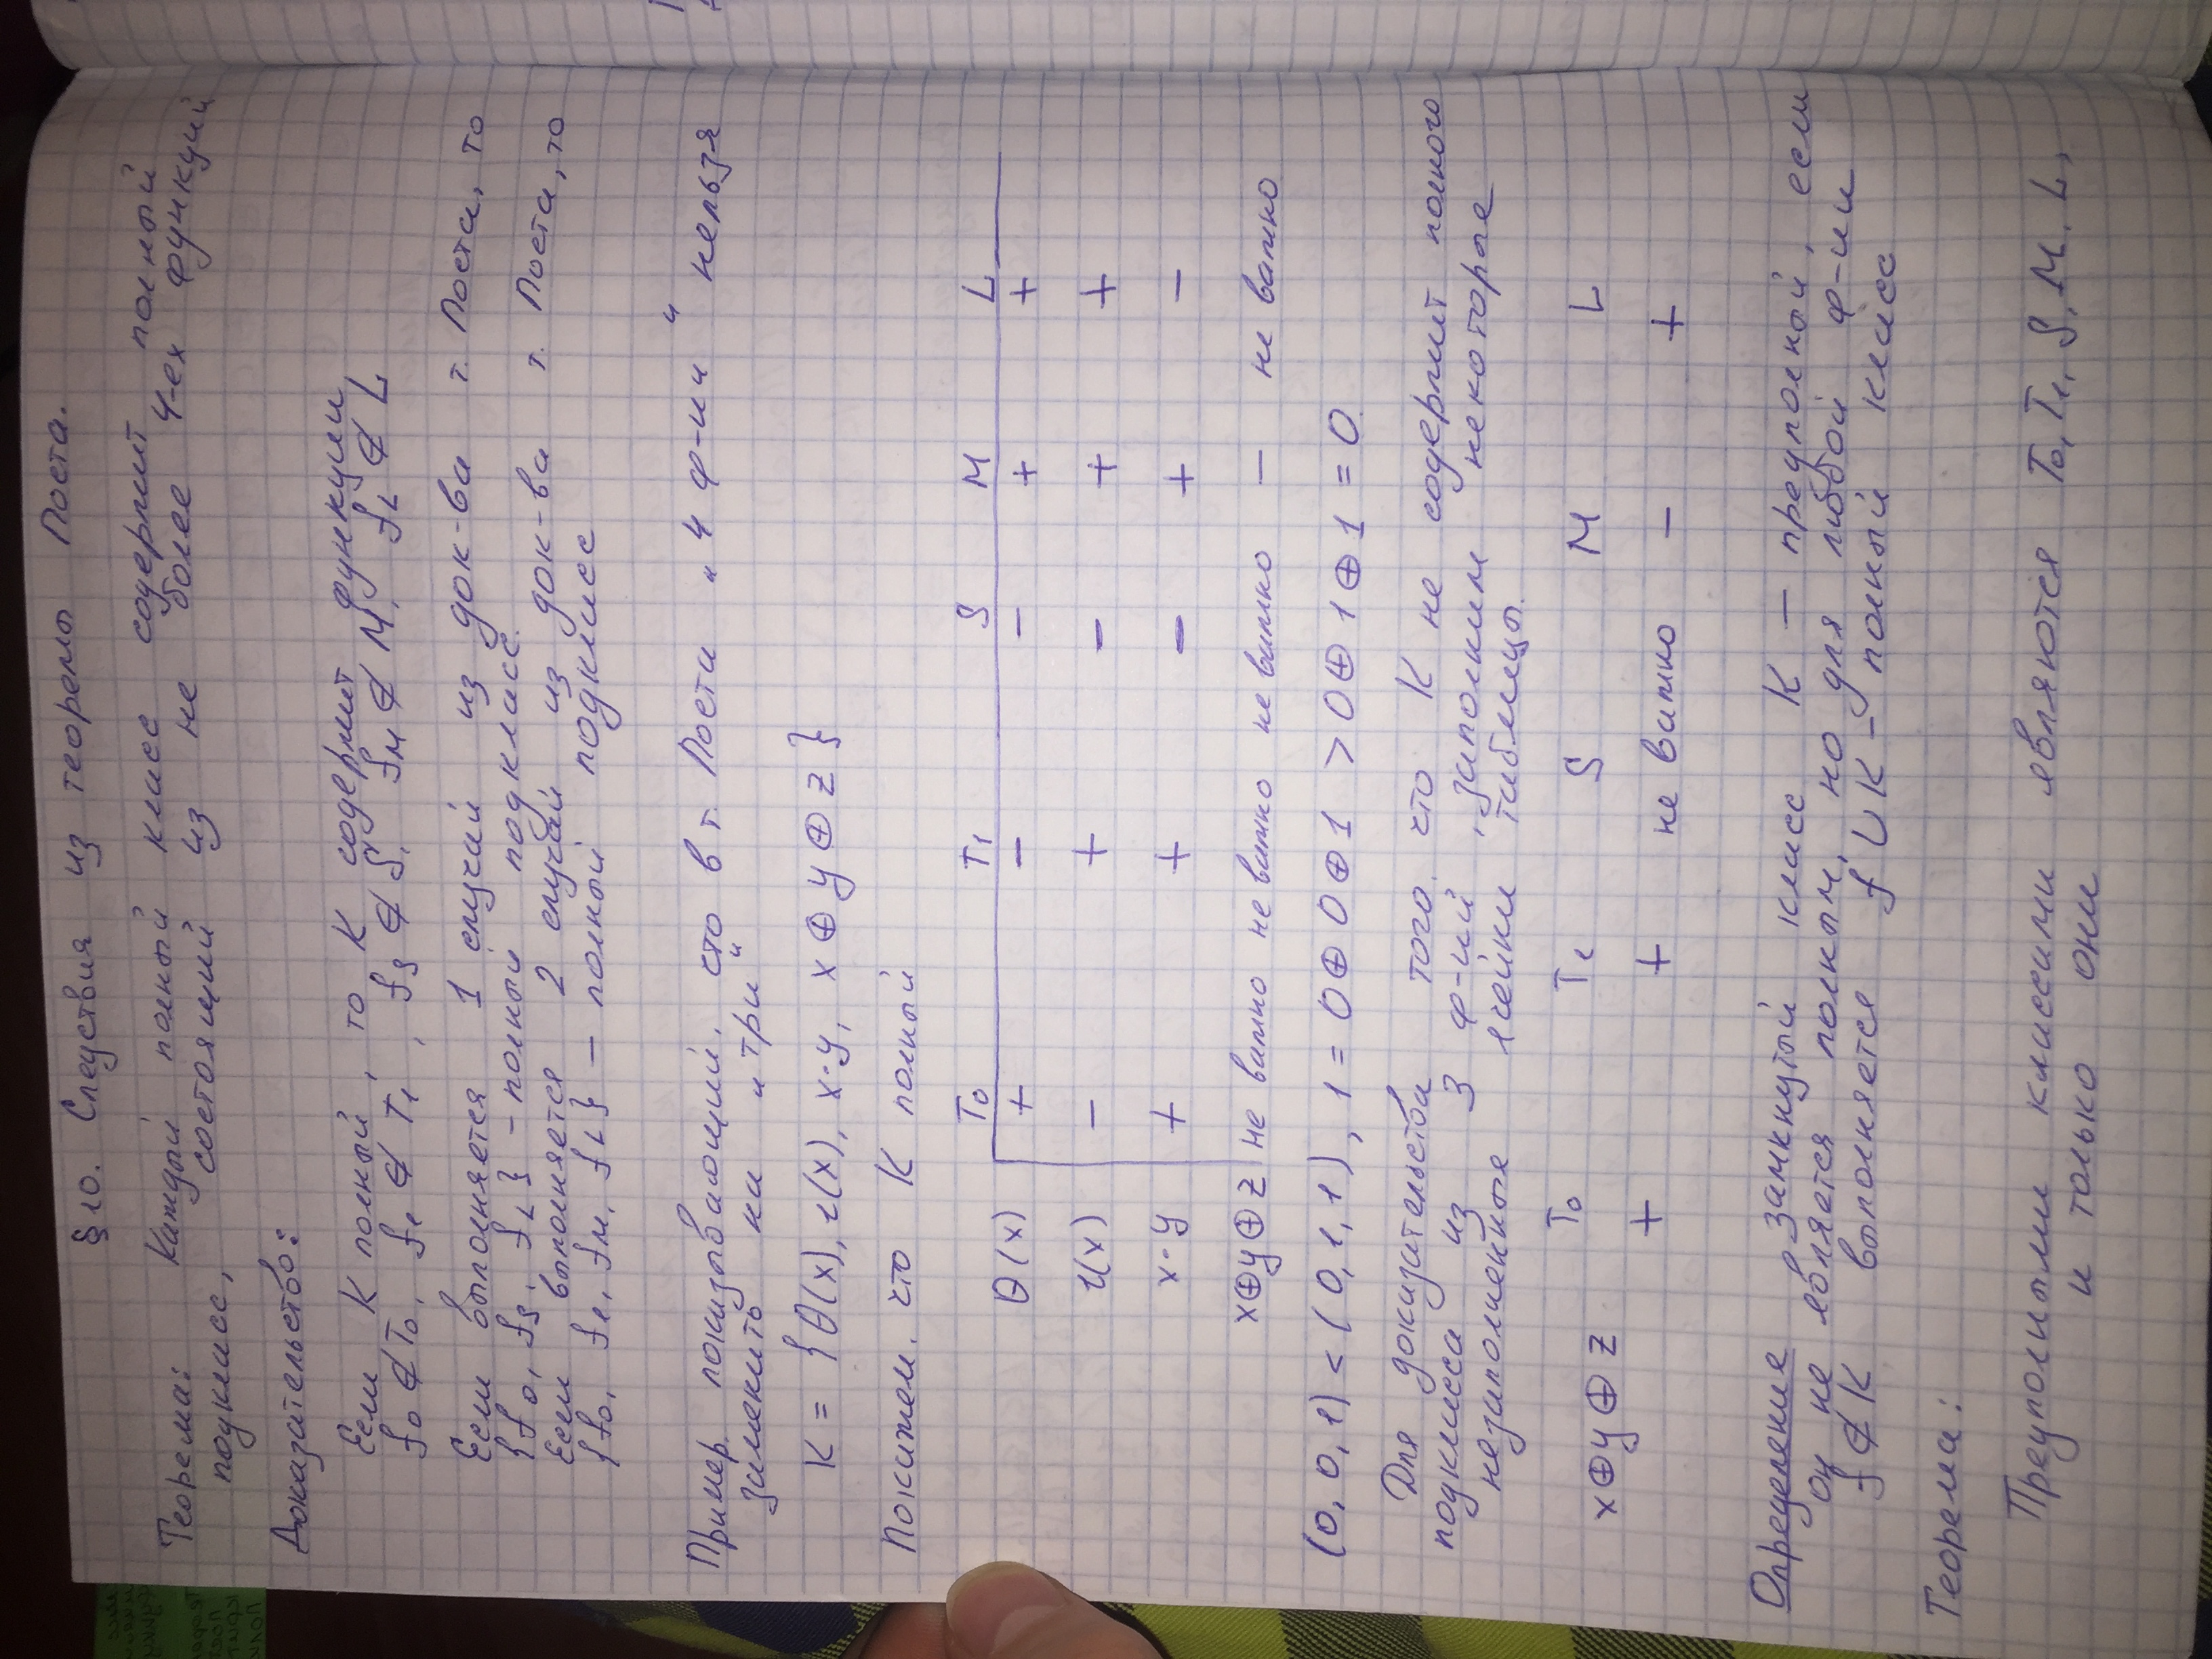 §10. Следствия из теоремы Поста.
Теорема: Каждый полный класс содержит полный
подкласс, состоящий из не более 4-ех функций
Доказательство:
Если K полный, то K содержит функции
f₀ ∉ T₀, f₁ ∉ T₁, fs ∉ S, fм ∉ M, fL ∉ L
Если выполняется 1 случай из док-ва т. Поста, то
{f₀, fs, fL} - полный подкласс.
Если выполняется 2 случай из док-ва т. Поста, то
{f₀, f₁, fм, fL} — полный подкласс
Пример, показывающий, сто в т. Поста „4 ф-ии“ нельзя
заменить на „три“
K = {θ(x), 1(x), x·y, x ⊕ y ⊕ z}
Покажем, что K полный
T₀ T₁ S M L
θ(x) + − − + +
1(x) − + − + +
x·y + + − + −
x⊕y⊕z не важно не важно не важно − не важно
(0, 0, 1) < (0, 1, 1), 1 = 0 ⊕ 0 ⊕ 1 > 0 ⊕ 1 ⊕ 1 = 0.
Для доказательства того, что K не содержит полного
подкласса из 3 ф-ий, заполним некоторые
незаполненные ячейки таблицы.
T₀ T₁ S M L
x⊕y⊕z
+ + не важно − +
Определение, замкнутый класс K — предполный, если
он не является полным, но для любой ф-ии
f ∉ K выполняется f ∪ K — полный класс
Теорема:
Предполными классами являются T₀, T₁, S, M, L,
и только они